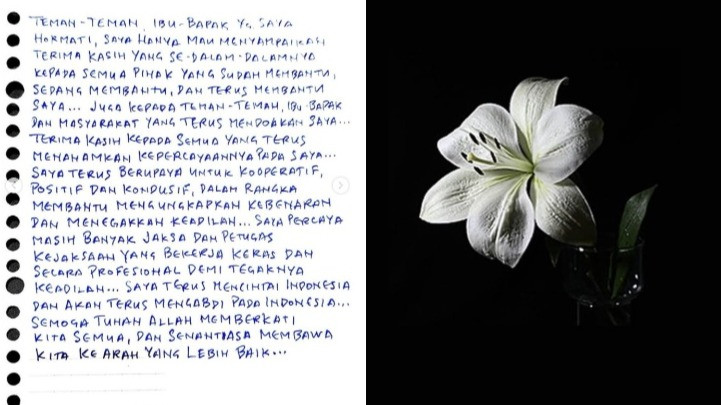 TEMAN-TEMAN, IBU-BAPAK YG SAYA
HORMATI, SAYA HANYA MAU MENYAMPAIKAN
TERIMA KASIH YANG SE-DALAM-DALAMNYA
KEPADA SEMUA PIHAK YANG SUDAH MEMBANTU,
SEDANG MEMBANTU, DAN TERUS MEMBANTU
SAYA... JUGA KEPADA TEMAN-TEMAN, IBU-BAPAK
DAN MASYARAKAT YANG TERUS MENDOAKAN SAYA...
TERIMA KASIH KEPADA SEMUA YANG TERUS
MENANAMKAN KEPERCAYAANNYA PADA SAYA...
SAYA TERUS BERUPAYA UNTUK KOOPERATIF,
POSITIF DAN KONDUSIF, DALAM RANGKA
MEMBANTU MENGUNGKAPKAN KEBENARAN
DAN MENEGAKKAN KEADILAN... SAYA PERCAYA
MASIH BANYAK JAKSA DAN PETUGAS
KEJAKSAAN YANG BEKERJA KERAS DAN
SECARA PROFESIONAL DEMI TEGAKNYA
KEADILAN... SAYA TERUS MENCINTAI INDONESIA
DAN AKAN TERUS MENGABDI PADA INDONESIA...
SEMOGA TUHAN ALLAH MEMBERKATI
KITA SEMUA, DAN SENANTIASA MEMBAWA
KITA KE ARAH YANG LEBIH BAIK...